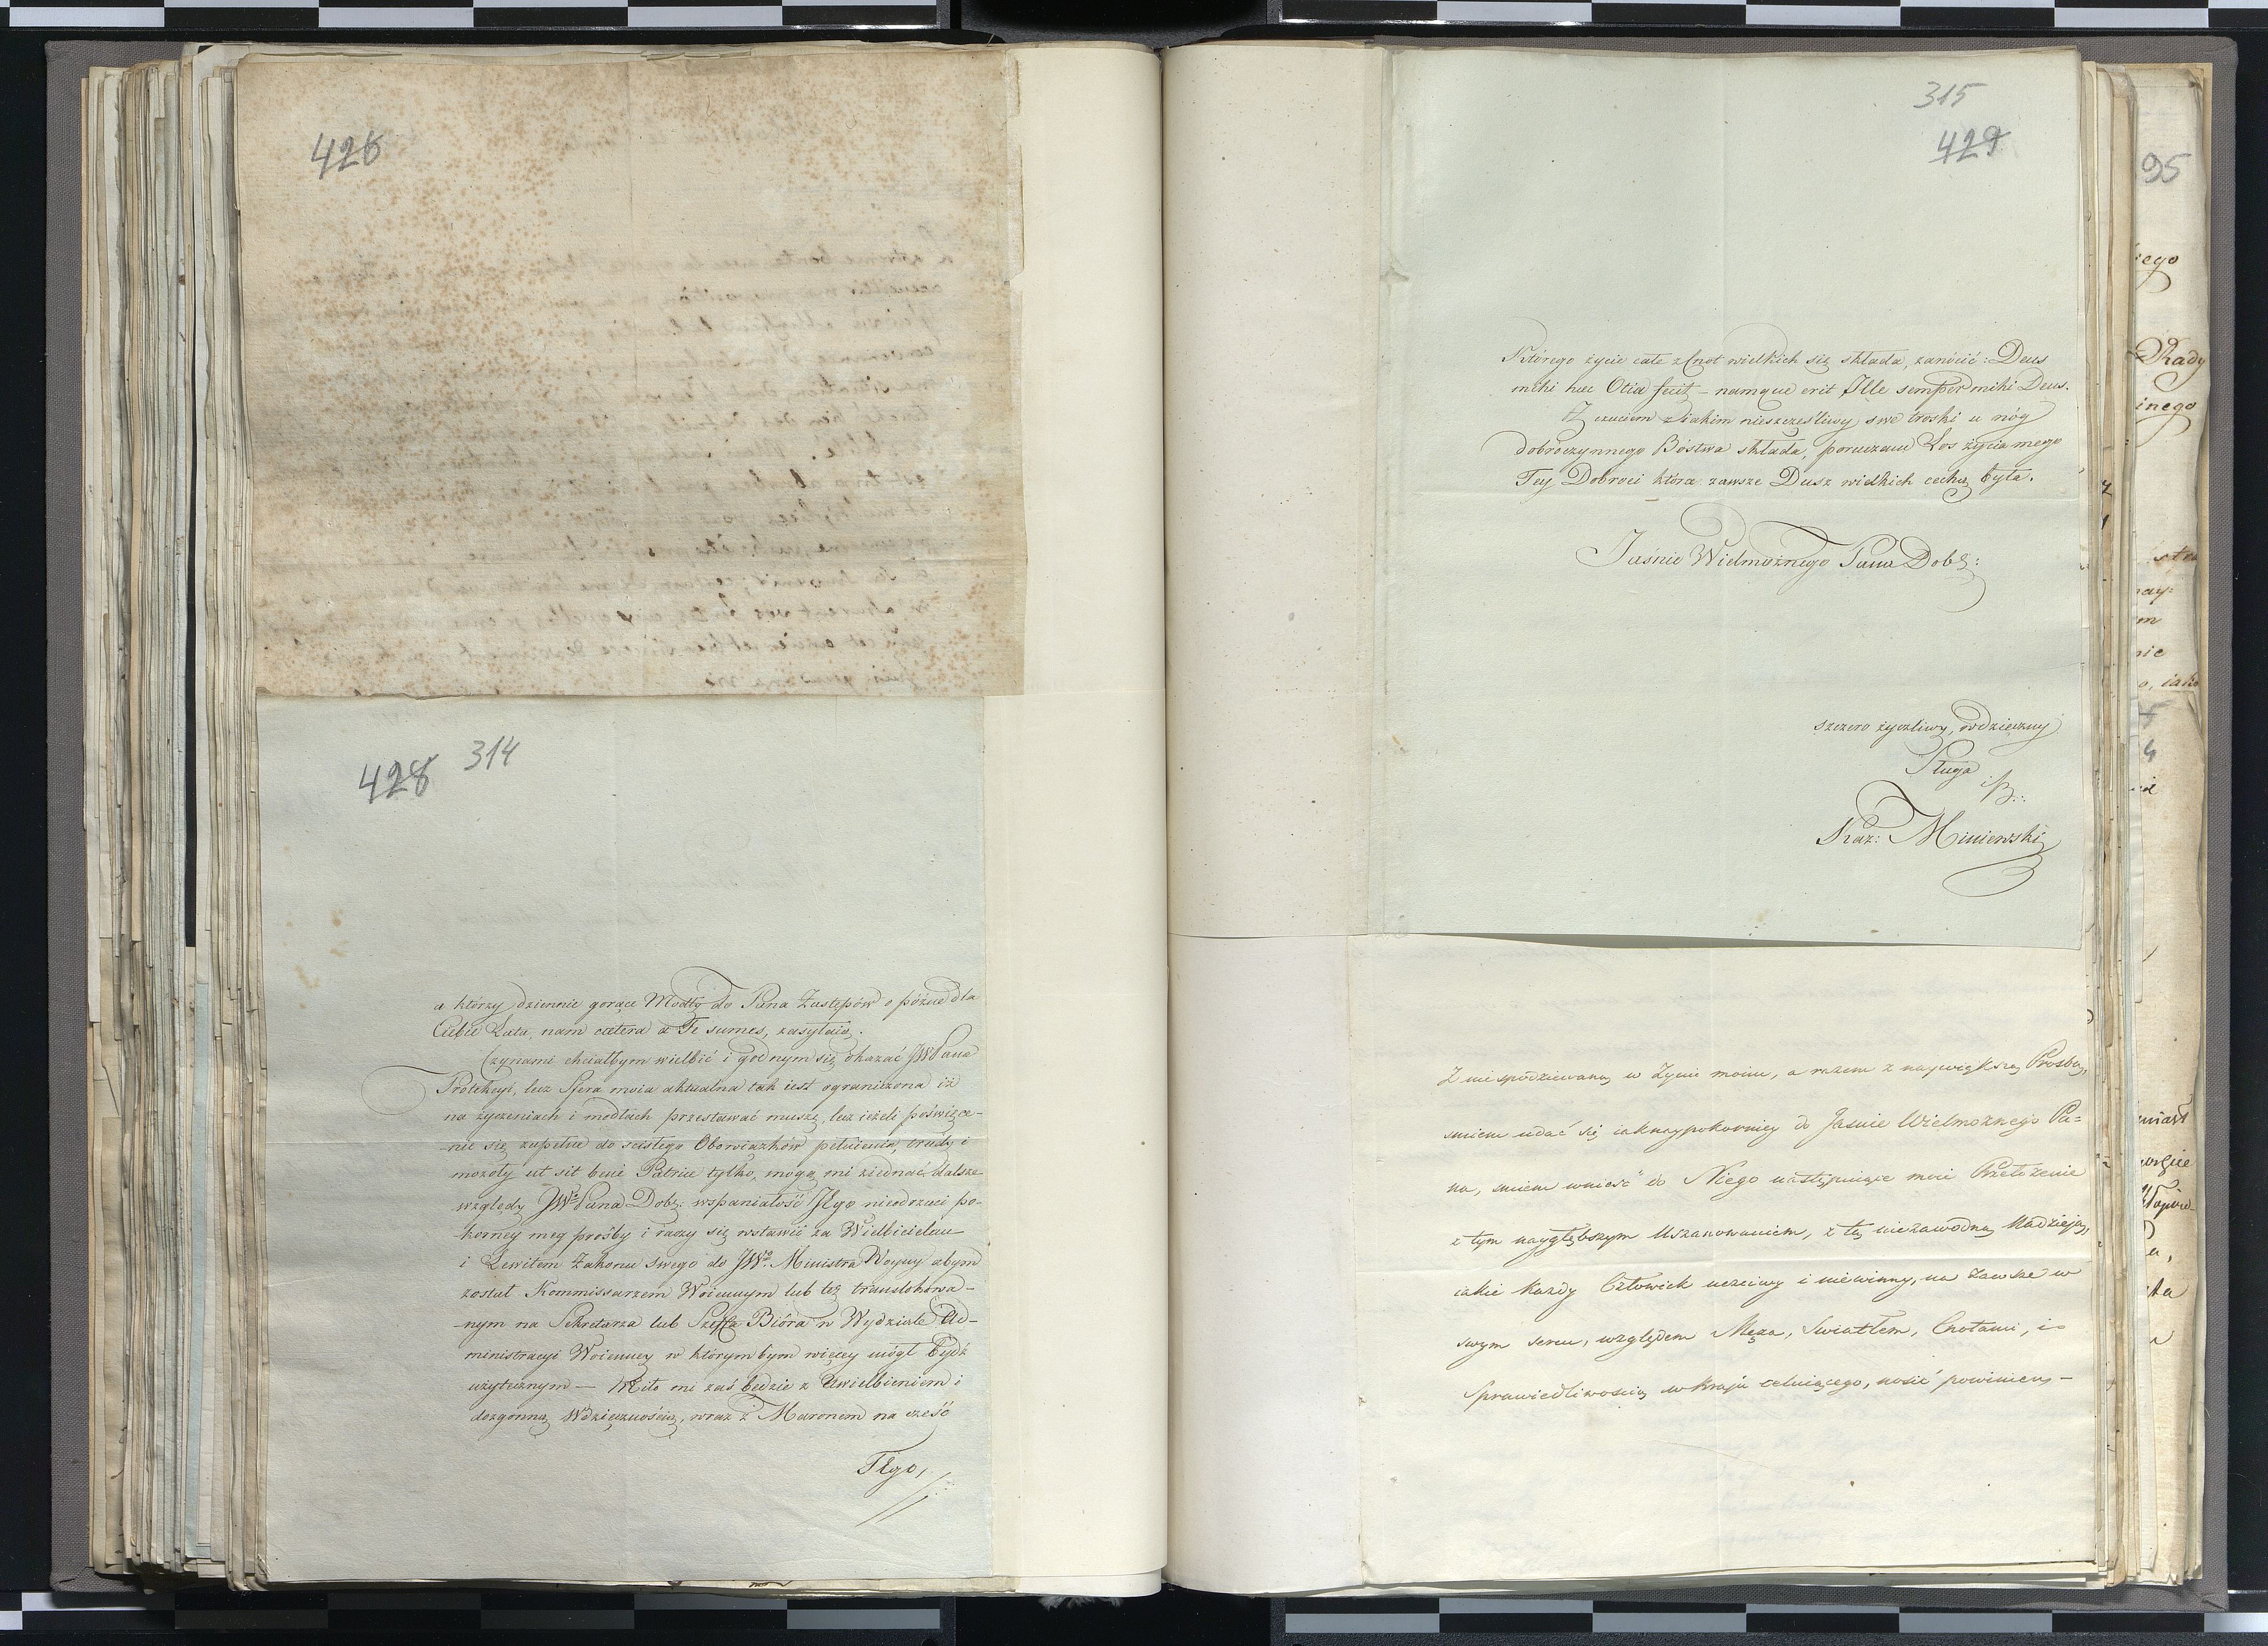 426
428 314
a którzy dziennie gorące Modły do Pana Zastępów o późne dla
Ciebie Lata, nam cætera a Te sumes, zasyłaią.
Czynami chciałbym wielbić i godnym się okazać JWPana
Protekcyi, lecz Sfera moia aktualna tak iest ograniczona iż
na życzeniach i modłach przestawać muszę, lecz ieżeli poświęce-
-nie się zupełne do ścisłego Obowiązków pełnienia, trudy i
mozoły ut sit bene Patriæ tylko, mogą mi ziednać dalsze
względy JWo Pana Dobr: wspaniałość JEgo nieodrzuci po-
korney mey prośby i raczy się wstawić za Wielbicielem
i Lewitem Zakonu swego do JWo Ministra Woyny abym
został Kommissarzem Woiennym lub też translokowa-
-nym na Sekretarza lub Szeffa Bióra w Wydziale Ad-
ministracyi Woienney w którymbym więcey mógł bydź
użytecznym — Miło mi zaś będzie z Uwielbieniem i
dozgonną Wdzięcznością, wraz z Maronem na cześć
TEgo,
315
429
Którego życie całe z Cnot wielkich się składa, zanócić: Deus
mihi hæc Otia fecit – namque erit Ille semper mihi Deus.
Z czuciem z iakim nieszczęśliwy swe troski u nóg
dobroczynnego Bóstwa składa, poruczam Los życia mego
Tey Dobroci która zawsze Dusz wielkich cechą była.
Jaśnie Wielmożnego Pana Dobr:
szczero życzliwy, wdzięczny
Sługa
B.:.
Kaz: Miniewski
Z niespodziewaną w Życiu moim, a razem z naywiększą Prozbą,
śmiem udać się iaknaypokorniey do Jasnie Wielmożnego Pa=
na, śmiem wnieść do Niego następuiące moie Przełożenie
z tym naygłębszym Uszanowaniem, z tą niezawodną Nadzieją,
iakie każdy Człowiek uczciwy i niewinny, na zawsze w
swym sercu, względem Męża, Swiatłem, Cnotami, i
Sprawiedliwością w Kraju celuiącego, nosić powinien, –
95
Rady
inego